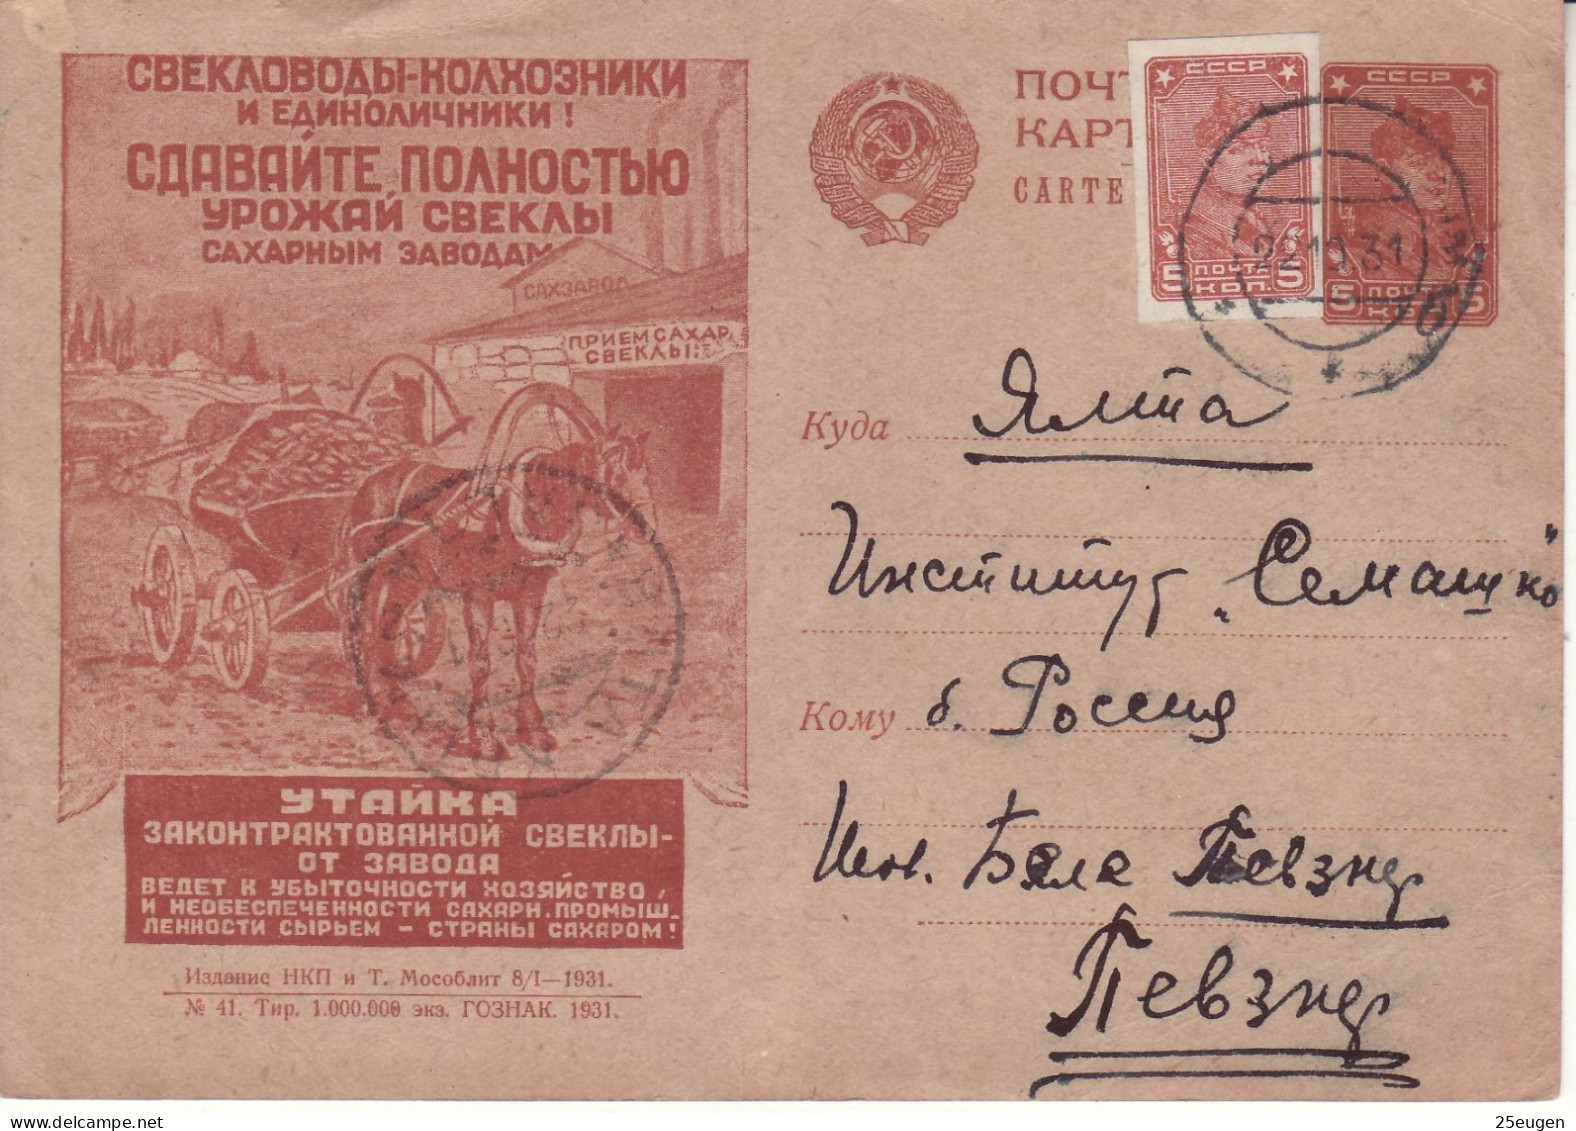 СВЕКЛОВОДЫ-КОЛХОЗНИКИ
И ЕДИНОЛИЧНИКИ!
СДАВАЙТЕ ПОЛНОСТЬЮ
УРОЖАЙ СВЕКЛЫ
САХАРНЫМ ЗАВОДАМ
САХЗАВОД
ПРИЕМ САХАР.
СВЕКЛЫ
УТАЙКА
ЗАКОНТРАКТОВАННОЙ СВЕКЛЫ-
ОТ ЗАВОДА
ВЕДЕТ К УБЫТОЧНОСТИ ХОЗЯЙСТВО,
И НЕОБЕСПЕЧЕННОСТИ САХАРН. ПРОМЫШ-
ЛЕННОСТИ СЫРЬЕМ - СТРАНЫ САХАРОМ!
Издание НКП и Т. Мособлит 8/I—1931.
№ 41. Тир. 1.000.000 экз. ГОЗНАК. 1931.
ПОЧТ
КАРТ
CARTE
СССР
ПОЧТА
5 КОП. 5
СССР
ПОЧТА
5 КОП. 5
22 10 31
б
Куда Ялта
Институт „Семашко"
Кому б. Россия
Бэле Певзнер
Певзнер
25eugen